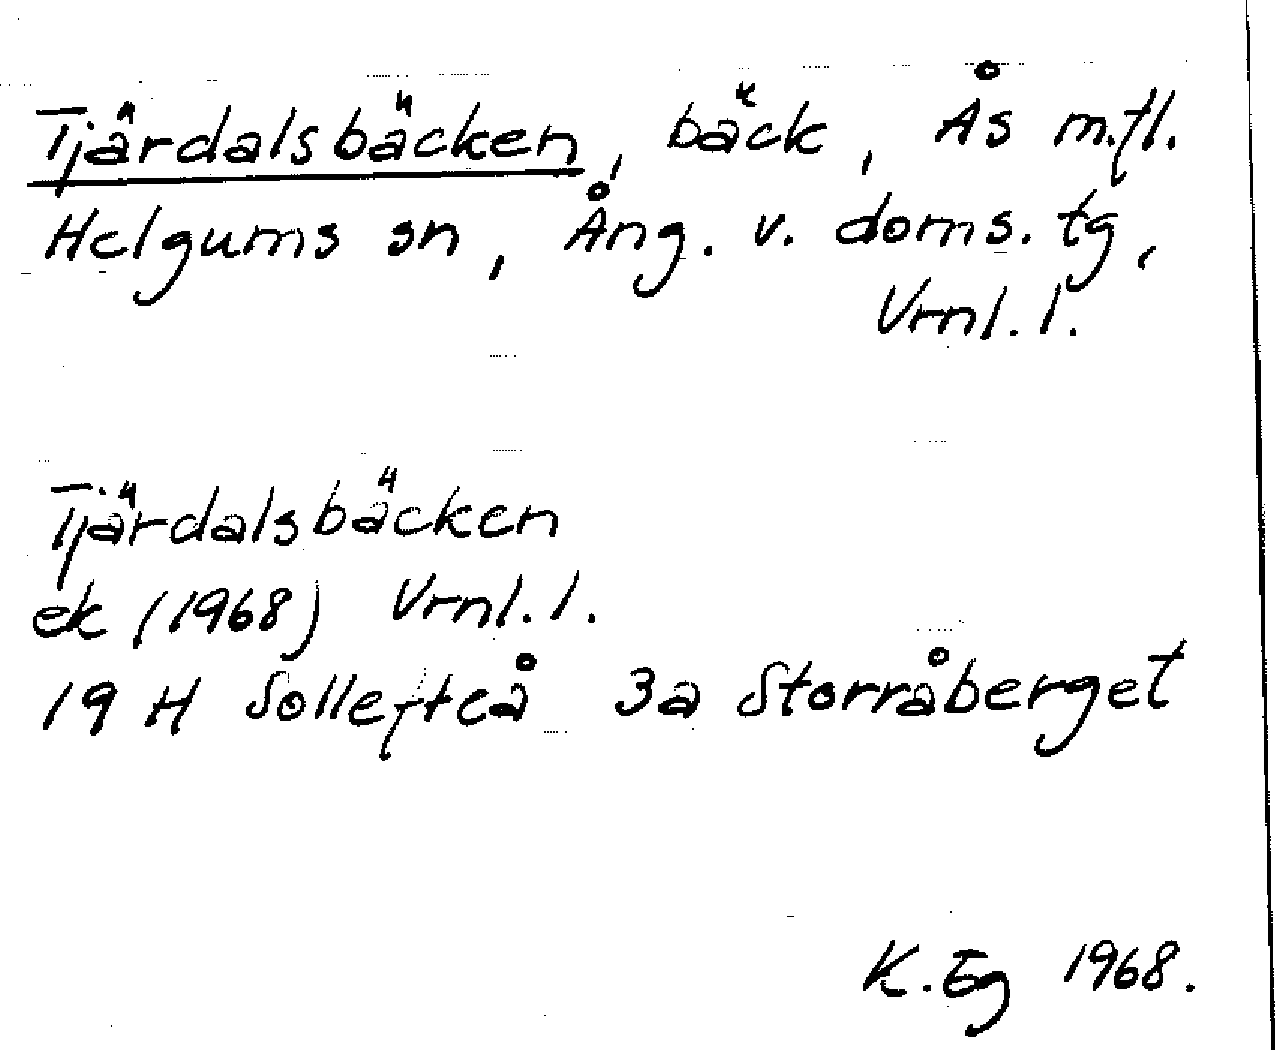 Tjärdalsbäcken, bäck, Ås m.fl.
Helgums sn, Ång. v. doms. tg,
Vrnl. l.
Tjärdalsbäcken
ek (1968) Vrnl. l.
19 H Sollefteå 3a Storråberget
K. Eg 1968.